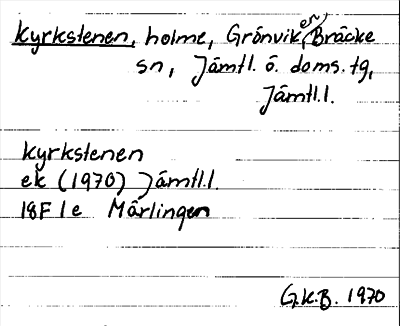 Kyrkstenen, holme, Grönviken, Bräcke
sn, Jämtl. ö. doms. tg,
Jämtl.l.
Kyrkstenen
ek (1970) Jämtl.l.
18F 1e Mårlingen
G.K.B. 1970